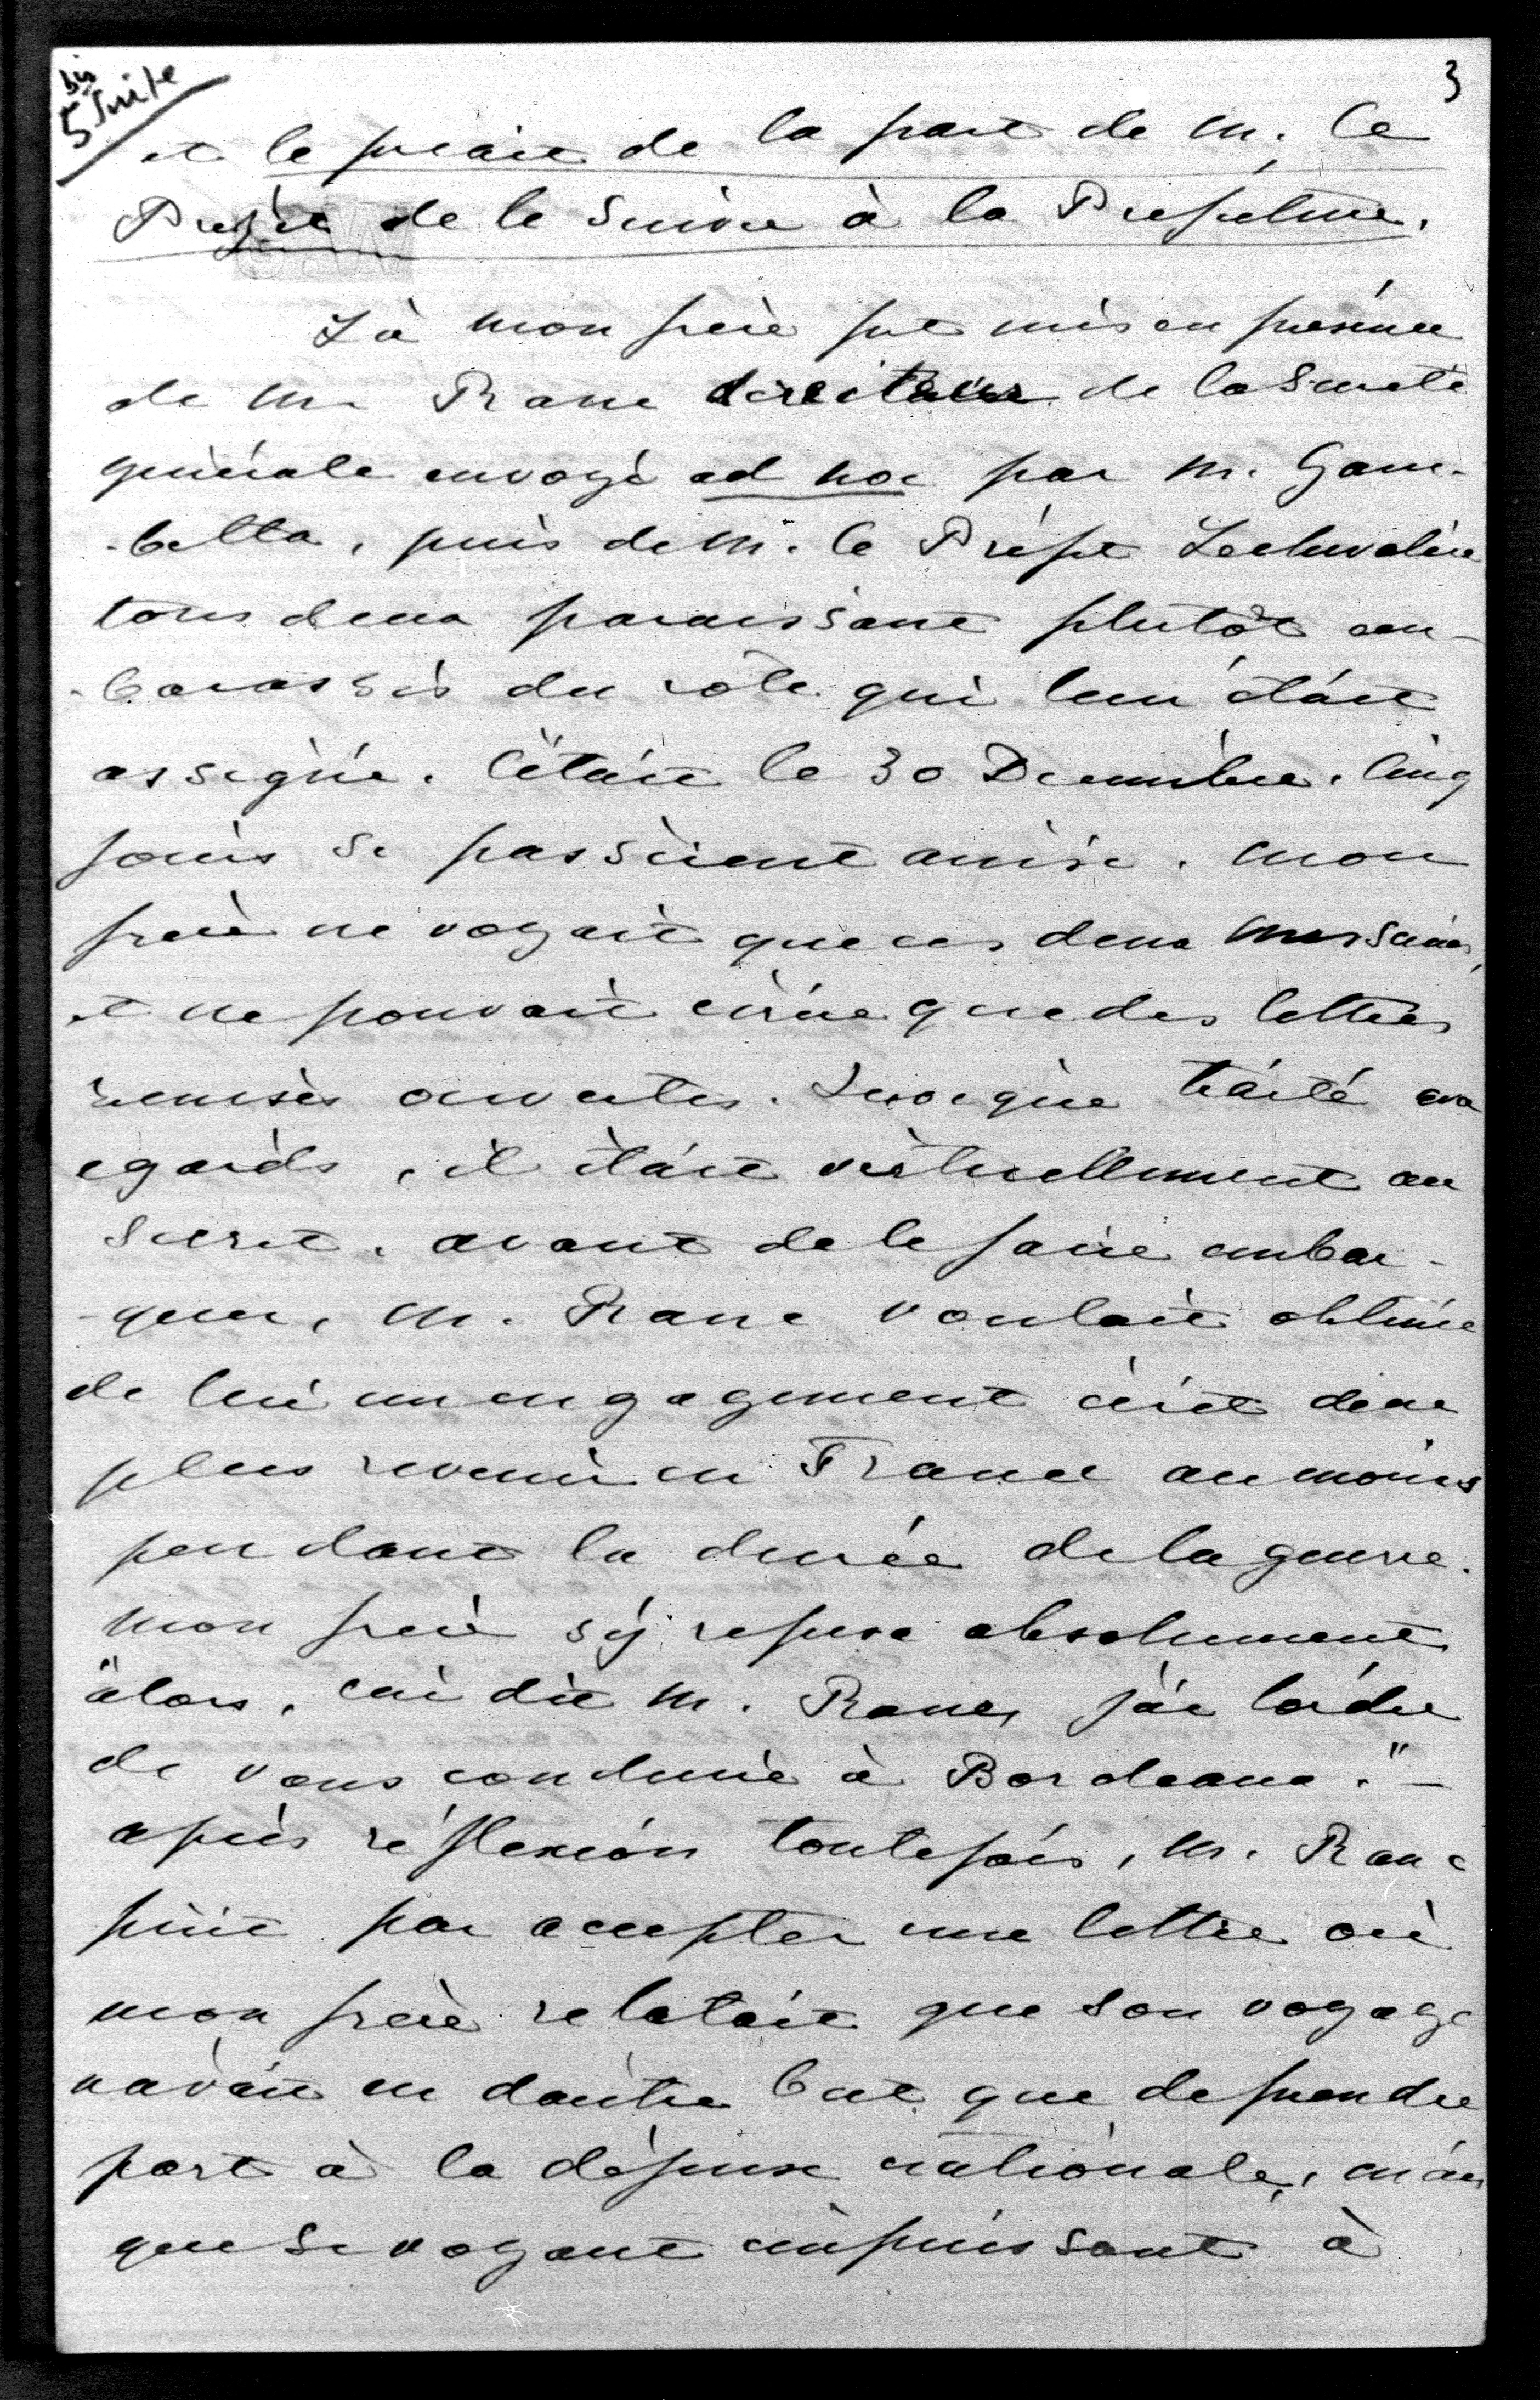 5 bis Suite
3
et le priait de la part de M. le
Préfet de le suivre à la Préfecture.
Là mon frère fut mis en présence
de M. Ranc directeur de la Sureté
générale envoyé ad hoc par M. Gam-
-betta, puis de M. le Préfet Lechevalier
tous deux paraissant plutôt em-
-barassés du rôle qui leur était
assigné. C'était le 30 Décembre. Cinq
jours se passèrent ainsi. Mon
frère ne voyait que ces deux messieurs,
et ne pouvait écrire que des lettres
remises ouvertes. Quoique traité avec
égards, il était virtuellement au
secret. Avant de le faire embar-
-quer, M. Ranc voulait obtenir
de lui un engagement écrit de ne
plus revenir en France au moins
pendant la durée de la guerre.
Mon frère s'y refusa absolument
"Alors, lui dit M. Ranc, j'ai l'ordre
de vous conduire à Bordeaux." —
Après réflexion toutefois, M. Ranc
finit par accepter une lettre où
mon frère relatait que son voyage
n'avait eu d'autre but que de prendre
part à la défense nationale, mais
que se voyant impuissant à